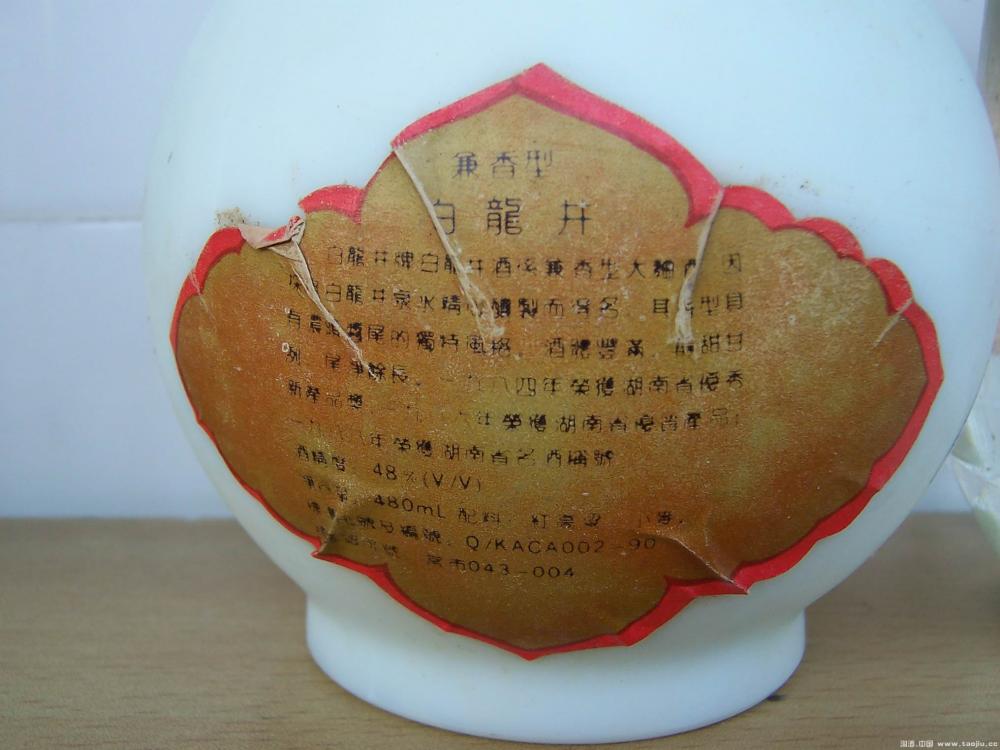 兼香型
白龍井
白龍井牌白龍井酒係兼香型大麯酒 因
白龍井泉水精 釀製而得名 其 型具
有濃頭醬尾的獨特風格 酒體豐滿 甜甘
冽 尾淨餘長 一九八四年榮獲湖南省優秀
新產品獎 一九 六年榮獲湖南省優質產品
一九八八年榮獲湖南省名酒稱號
酒精度 48%(V/V)
淨含量 480mL 配料 紅高粱 小麥
標準代號及編號 Q/KACA002-90
043-004
淘酒.中国 www.taojiu.cc